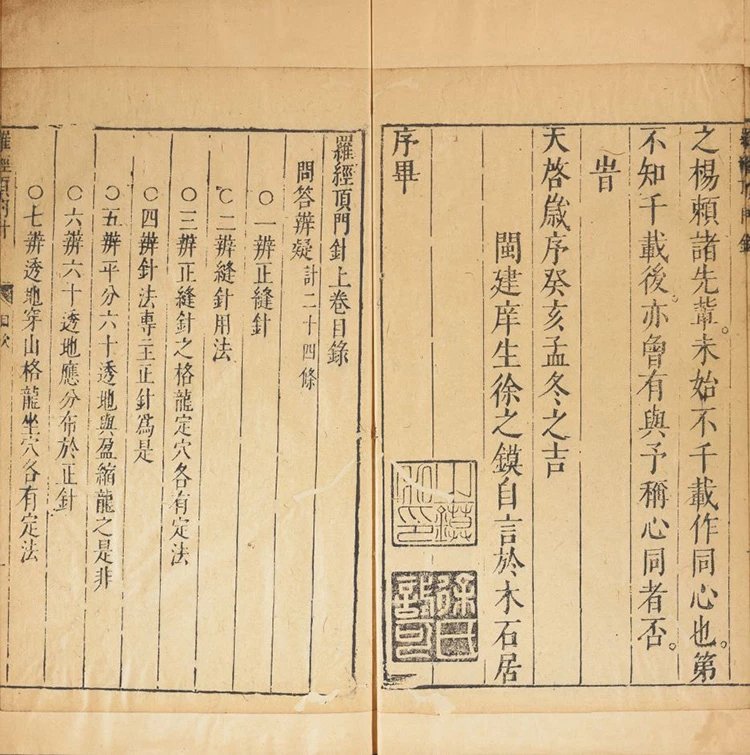 之楊賴諸先輩。未始不千載作同心也。第
不知千載後。亦會有與予稱心同者否。
旹
天啓歲序癸亥孟冬之吉
閩建庠生徐之鏌自言於木石居
序畢
羅經頂門針上卷目錄
問答辨疑計二十四條
〇一辨正縫針
〇二辨縫針用法
〇三辨正縫針之格龍定穴各有定法
〇四辨針法專主正針爲是
〇五辨平分六十透地與盈縮龍之是非
〇六辨六十透地應分布於正針
〇七辨透地穿山格龍坐穴各有定法
羅經頂門針
目次